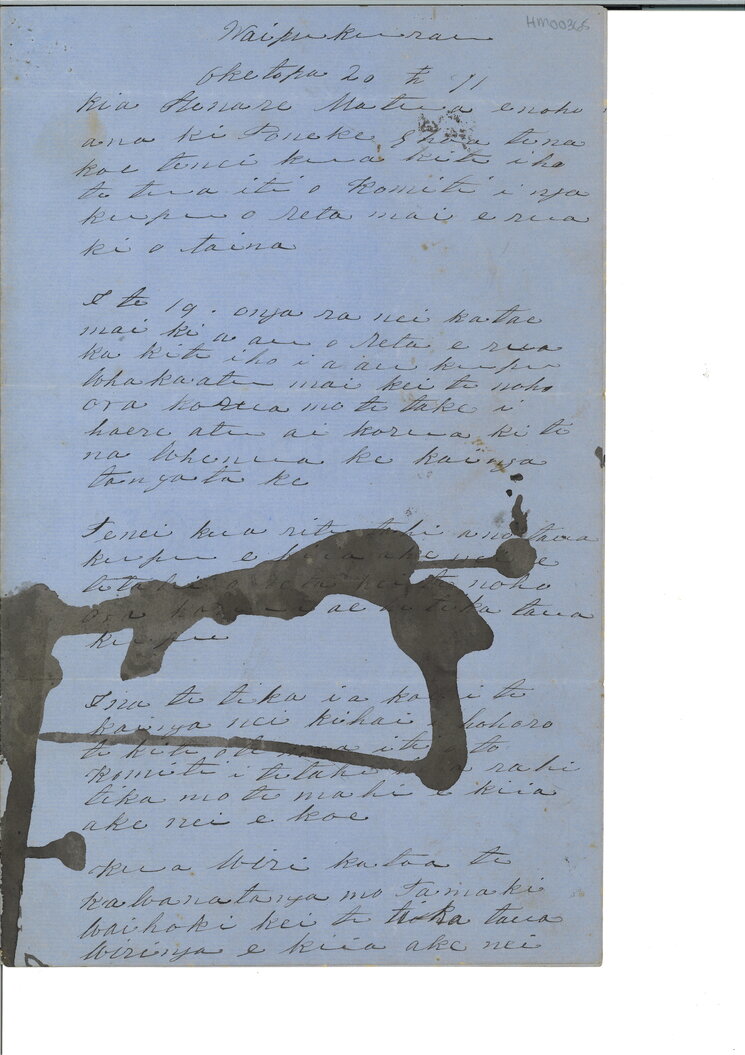 HM00365
Waipukurau
Oketopa 20 th 71
Kia Henare Matua e noho
ana ki Poneke E hoa tena
koe tenei kua kite iho
te tua iti o Komiti i nga
kupu o reta mai e rua
ki o taina
I te 19. onga ra nei ka tae
mai ki a au o reta e rua
ka kite iho i a au kupu
Whakaatu mai kei te noho
ora korua mo te take i
haere atu ai korua ki te
na Whenua ke kainga
tangata ke
Tenei kua rite tahi ano taua
kupu e kiia ake nei e
tetahi o reta kei te noho
ora korua ae tika taua
kupu
Ina te tika ia koe i te
kainga nei kihai i hohoro
te kite iti o to
Komiti i tetahi rahi
tika mo te mahi e kiia
ake nei e koe
Kua Wiri katoa te
Kawanatanga mo Tamaki
Waihoki kei te tika taua
Wiringa e kiia ake nei